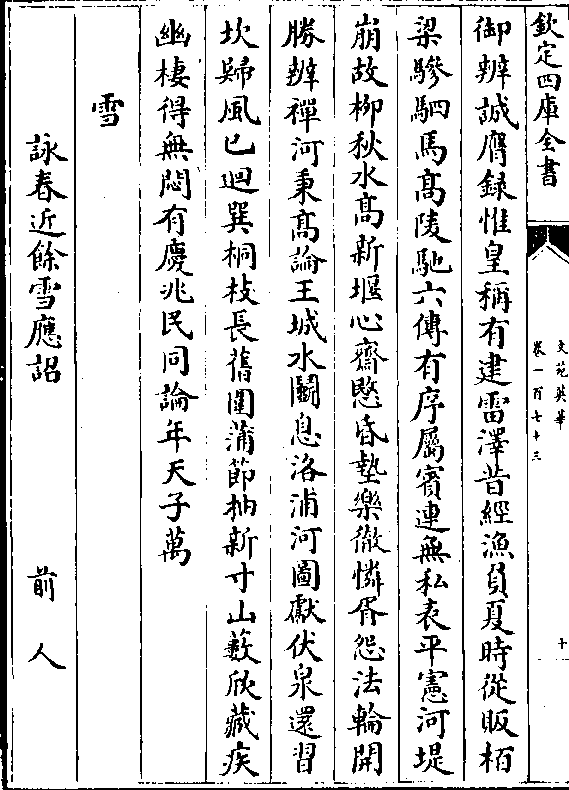 欽定四庫全書
文苑英華
卷一百七十三
十
御辨誠膺録惟皇稱有建雷澤昔經漁負夏時從販栢
梁驂駟馬髙陵馳六傳有序屬賓連無私表平憲河堤
崩故柳秋水髙新堰心齋愍昏墊樂徹憐胥怨法輪開
勝辨禪河秉髙論王城水鬭息洛浦河圖獻伏泉還習
坎歸風已迴巽桐枝長舊圍蒲節抽新寸山藪欣藏疾
幽棲得無悶有慶兆民同論年天子萬
雪
詠春近餘雪應詔 前人